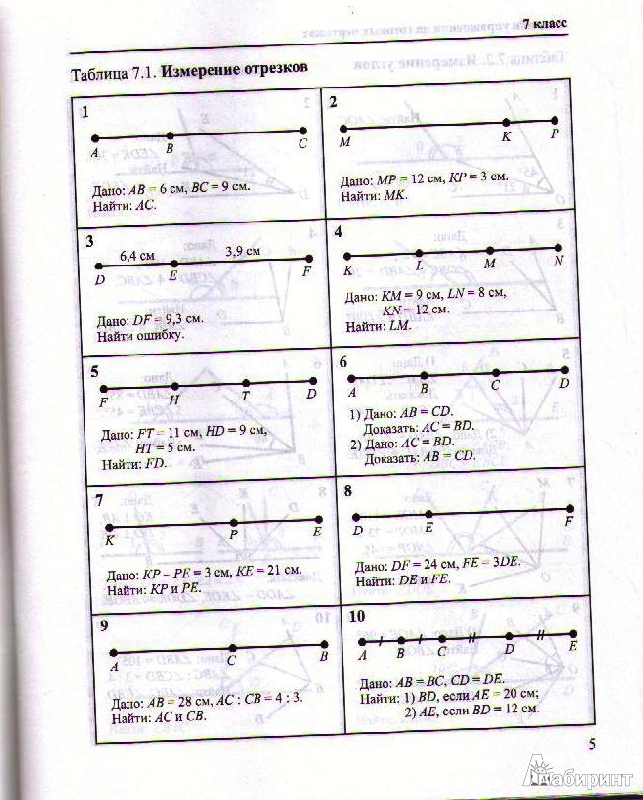 7 класс
Таблица 7.1. Измерение отрезков
1
A B C
Дано: AB = 6 см, BC = 9 см.
Найти: AC.
2
M K P
Дано: MP = 12 см, KP = 3 см.
Найти: MK.
3
6,4 см 3,9 см
D E F
Дано: DF = 9,3 см.
Найти ошибку.
4
K L M N
Дано: KM = 9 см, LN = 8 см,
KN = 12 см.
Найти: LM.
5
F H T D
Дано: FT = 11 см, HD = 9 см,
HT = 5 см.
Найти: FD.
6
A B C D
1) Дано: AB = CD.
Доказать: AC = BD.
2) Дано: AC = BD.
Доказать: AB = CD.
7
K P E
Дано: KP – PE = 3 см, KE = 21 см.
Найти: KP и PE.
8
D E F
Дано: DF = 24 см, FE = 3DE.
Найти: DE и FE.
9
A C B
Дано: AB = 28 см, AC : CB = 4 : 3.
Найти: AC и CB.
10
A B C D E
Дано: AB = BC, CD = DE.
Найти: 1) BD, если AE = 20 см;
2) AE, если BD = 12 см.
5
Лабиринт